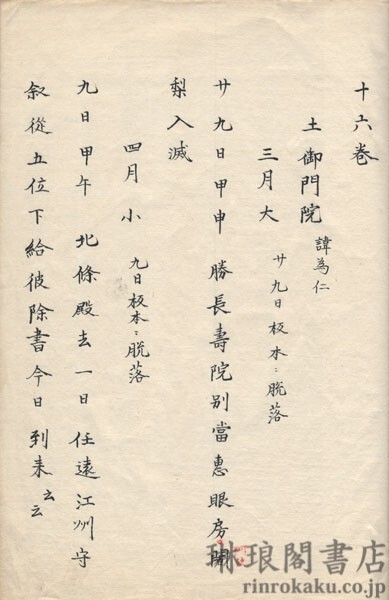 十六巻
土御門院 諱為仁
三月大 廿九日板本ニ脱落
廿九日甲申勝長壽院別當惠眼房闍
梨入滅
四月小 九日板本ニ脱落
九日甲午北條殿去一日任遠江州守
叙從五位下給彼除書今日到来云云
琳琅閣書店
rinrokaku.co.jp